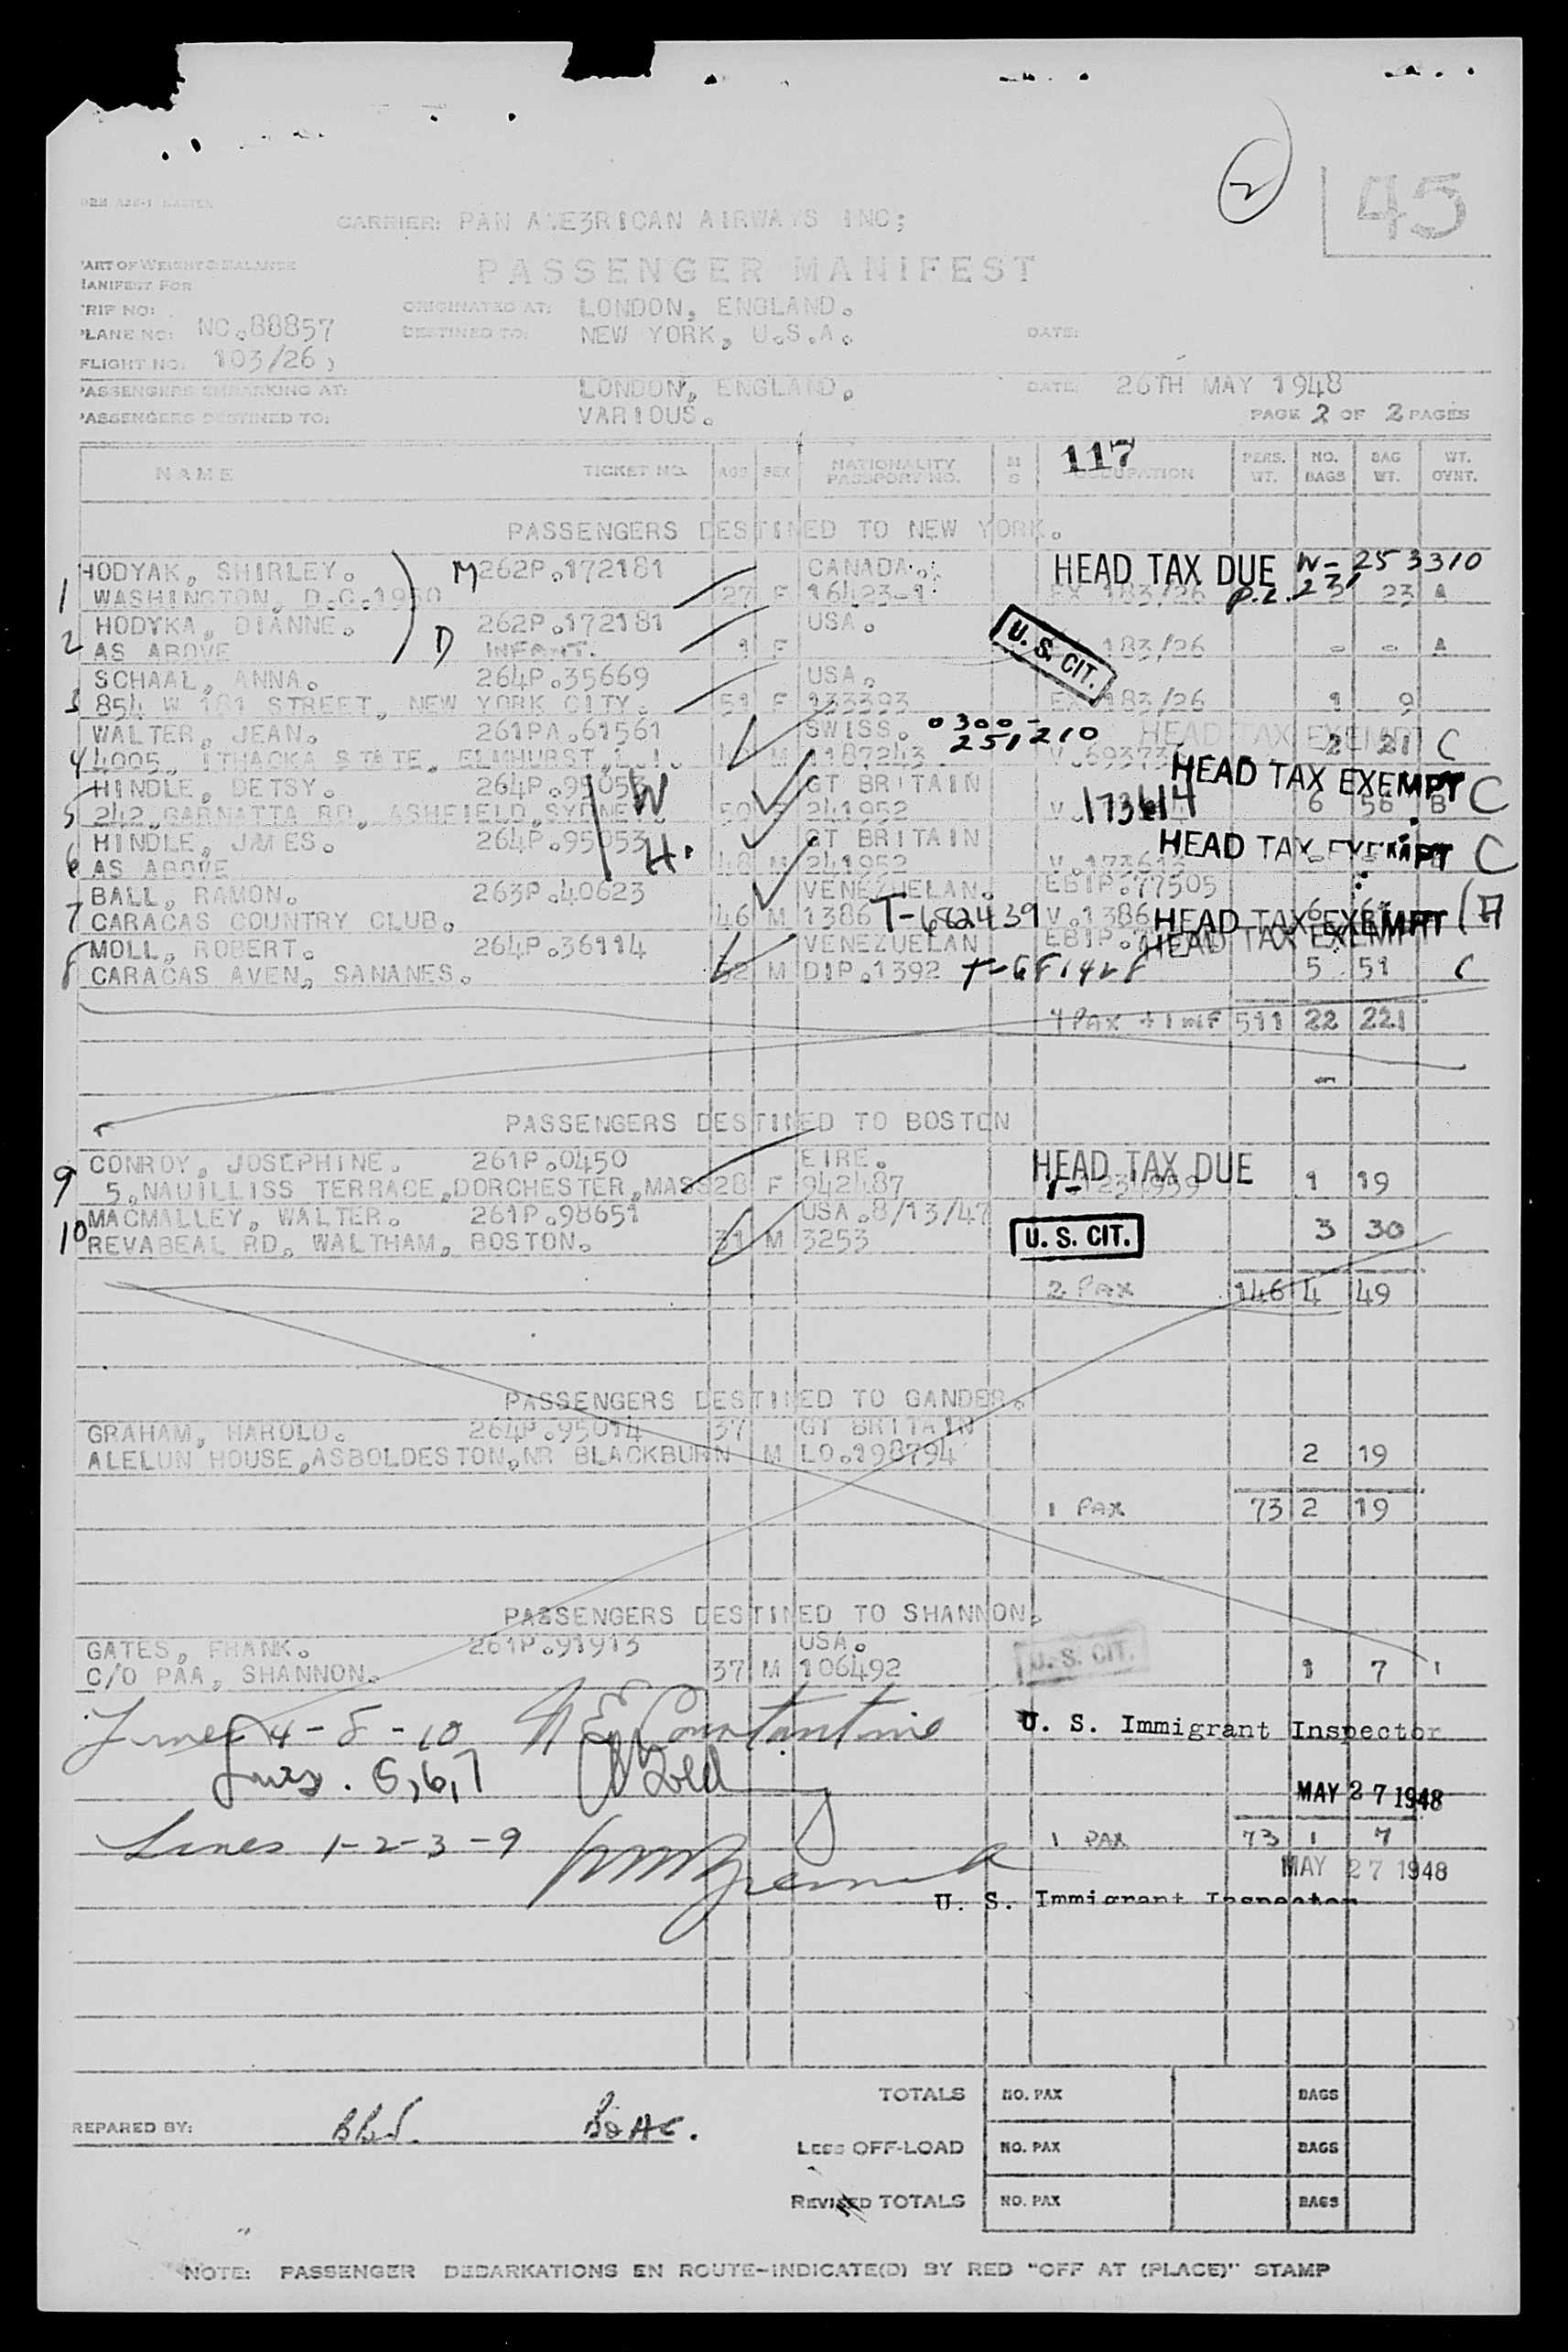 2
45
CARRIER: PAN AME3RICAN AIRWAYS INC;
PART OF WEIGHT & BALANCE
MANIFEST FOR
PASSENGER MANIFEST
TRIP NO:
ORIGINATED AT: LONDON, ENGLAND.
PLANE NO: NC.88857
DESTINED TO: NEW YORK, U.S.A.
DATE:
FLIGHT NO. 103/26
PASSENGERS EMBARKING AT: LONDON, ENGLAND.
DATE: 26TH MAY 1948
PASSENGERS DESTINED TO: VARIOUS.
PAGE 2 OF 2 PAGES
117
NAME TICKET NO. AGE SEX NATIONALITY PASSPORT NO. M S OCCUPATION PERS. WT. NO. BAGS BAG WT. WT. OVNT.
PASSENGERS DESTINED TO NEW YORK.
HODYAK, SHIRLEY. M 262P.172181 CANADA. HEAD TAX DUE N-253310
1 WASHINGTON, D.C. 1950 27 F 16423-1 EX 183/26 P.L. 231 23 A
HODYKA, DIANNE. 262P.172181 USA.
2 AS ABOVE D INFANT. 1 F U. S. CIT. 183/26 - - A
SCHAAL, ANNA. 264P.35669 USA.
3 854 W 181 STREET, NEW YORK CITY. 51 F 133393 EX 183/26 1 9
WALTER, JEAN. 261PA.61561 SWISS. 0300- 251210 HEAD TAX EXEMPT
4 4005, ITHACKA STATE, ELMHURST, L.I. M 1187243 2 21 C
HINDLE, BETSY. 264P.95053 W GT BRITAIN HEAD TAX EXEMPT C
5 242, GARNATTA RD, ASHFIELD, SYDNEY. 50 241952 V. 173614 6 56 B
HINDLE, JAMES. 264P.95053 H. GT BRITAIN HEAD TAX EXEMPT C
6 AS ABOVE 48 M 241952 V.173613
BALL, RAMON. 263P.40623 VENEZUELAN. EBIP.77505
7 CARACAS COUNTRY CLUB. 46 M 1386 T-682439 V.1386 HEAD TAX EXEMPT
MOLL, ROBERT. 264P.36114 VENEZUELAN HEAD TAX EXEMPT
8 CARACAS AVEN, SANANES. 52 M DIP.1392 5 51 C
7 PAX + 1 INF 511 22 221
PASSENGERS DESTINED TO BOSTON
CONROY, JOSEPHINE. 261P.0450 EIRE. HEAD TAX DUE
9 5, NAUILLISS TERRACE, DORCHESTER, MASS 28 F 942487 1 19
MACMALLEY, WALTER. 261P.98651 USA.8/13/47
10 REVABEAL RD, WALTHAM, BOSTON. 31 M 3253 U. S. CIT. 3 30
2 PAX 146 4 49
PASSENGERS DESTINED TO GANDER.
GRAHAM, HAROLD. 264P.95014 37 GT BRITAIN
ALELUN HOUSE, ASBOLDESTON, NR BLACKBURN M LO.198794 2 19
1 PAX 73 2 19
PASSENGERS DESTINED TO SHANNON.
GATES, FRANK. 261P.91913 USA.
C/O PAA, SHANNON. 37 M 106492 U. S. CIT. 1 7
Lines 4-8-10 Constantine U. S. Immigrant Inspector
Lines. 5,6,7
MAY 27 1948
Lines 1-2-3-9
1 PAX 73 1 7
MAY 27 1948
U. S. Immigrant Inspector
TOTALS NO. PAX BAGS
PREPARED BY: BOAC.
LESS OFF-LOAD NO. PAX BAGS
REVISED TOTALS NO. PAX BAGS
NOTE: PASSENGER DEBARKATIONS EN ROUTE-INDICATE(D) BY RED "OFF AT (PLACE)" STAMP